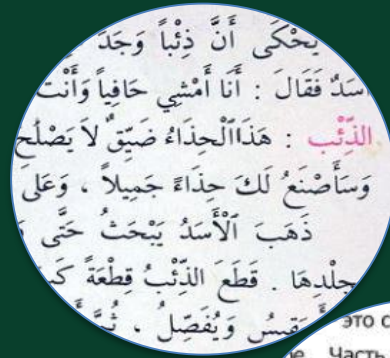 يُحْكَى أَنَّ ذِئْباً وَجَدَ
أَسَدٌ فَقَالَ : أَنَا أَمْشِي حَافِياً وَأَنْتَ
الذِّئْب : هَذَا ٱلْحِذَاءُ ضَيِّقٌ لاَ يَصْلُح
وَسَأَصْنَعُ لَكَ حِذَاءً جَمِيلاً ، وَعَلَى
ذَهَبَ ٱلْأَسَدُ يَبْحَثُ حَتَّى
جِلْدِهَا . قَطَعَ الذِّئْبُ قِطْعَةً
يَقِيسُ وَيُفَصِّلُ ، ثُمَّ
это
Часть